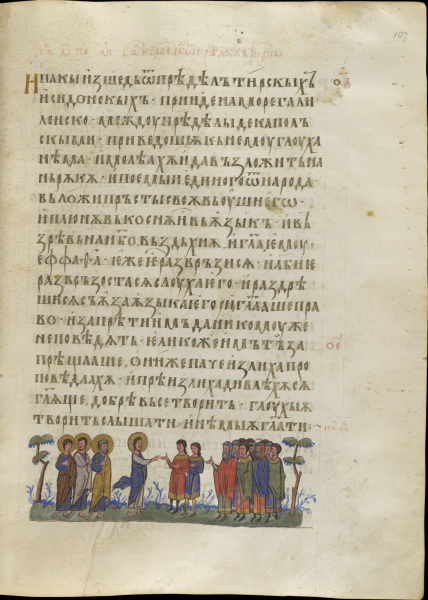 107
И пакы изшедь ѿ прѣдѣлъ тирскыхъ
и сидонскыхъ · прииде на море гали
леиско · междоу прѣдѣлы декапол
скыми · приведошѫ къ немоу глоуха
нѣма · и молѣахѫ и да възложитъ на
нь рѫкѫ · и поемь и единого ѿ народа
вьложи прьсты своѫ въ оуши его
и плюнѫвь коснѫ и въ ѧзыкъ · и въ
зрѣвь на нбо въздъхнѫ, и гла емоу ·
еффаѳа · еже е развръзисѧ · и абие
развръзостасѧ слоуха его · и раздрѣ
шисѧ ѫза ѧзыка его · и глааше пра
во · и запрѣти имь да никомоу же
не повѣдѧтъ · елико же имь тъ за
прѣщааше, они же паче излиха про
повѣдаахѫ · и прѣизлиха дивлѣхѫсѧ
глѧще, добрѣ вьсе творить · глоухыѫ
творить слышати · и нѣмыѫ глати :·